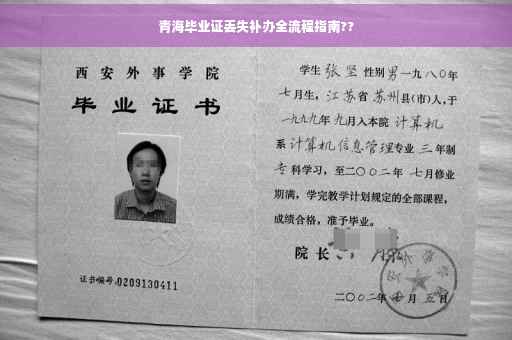 青海毕业证丢失补办全流程指南??
西安外事学院
毕业证书
证书编号:0209130411
学生 张坚 性别 男 一九八〇年
七月生，江苏省 苏州县(市)人,于
一九九九年 九月入本院 计算机
系 计算机信息管理专业 三 年制
专科学习，至二〇〇二年 七月修业
期满，学完教学计划规定的全部课程，
成绩合格，准予毕业。
院长
二〇〇二年 月五日